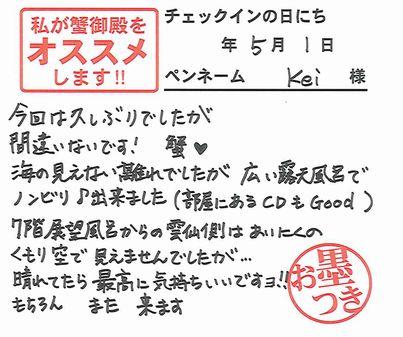 私が蟹御殿を
オススメ
します!!
チェックインの日にち
年 5月 1日
ペンネーム Kei 様
今回は久しぶりでしたが
間違いないです! 蟹♥
海の見えない離れでしたが 広い露天風呂で
ノンビリ♪出来ました(部屋にあるCDもGood)
7階展望風呂からの雲仙側はあいにくの
くもり空で見えませんでしたが…
晴れてたら最高に気持ちいいですョ!!
もちろん また 来ます
お墨つき